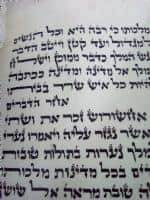 מלכותו כי רבה היא וכל הנשים
למגדול ועד קטן וייטב הדבר
המלך כדבר ממוכן וישלח
מלך אל מדינה ומדינה ככתבה
היות כל איש שרר בביתו
אחר הדברים
אחשורוש זכר את ושתי
אשר נגזר עליה ויאמרו נערי
מלך נערות בתולות טובות
בכל מדינות מלכותו
טובת מראה אל שושן